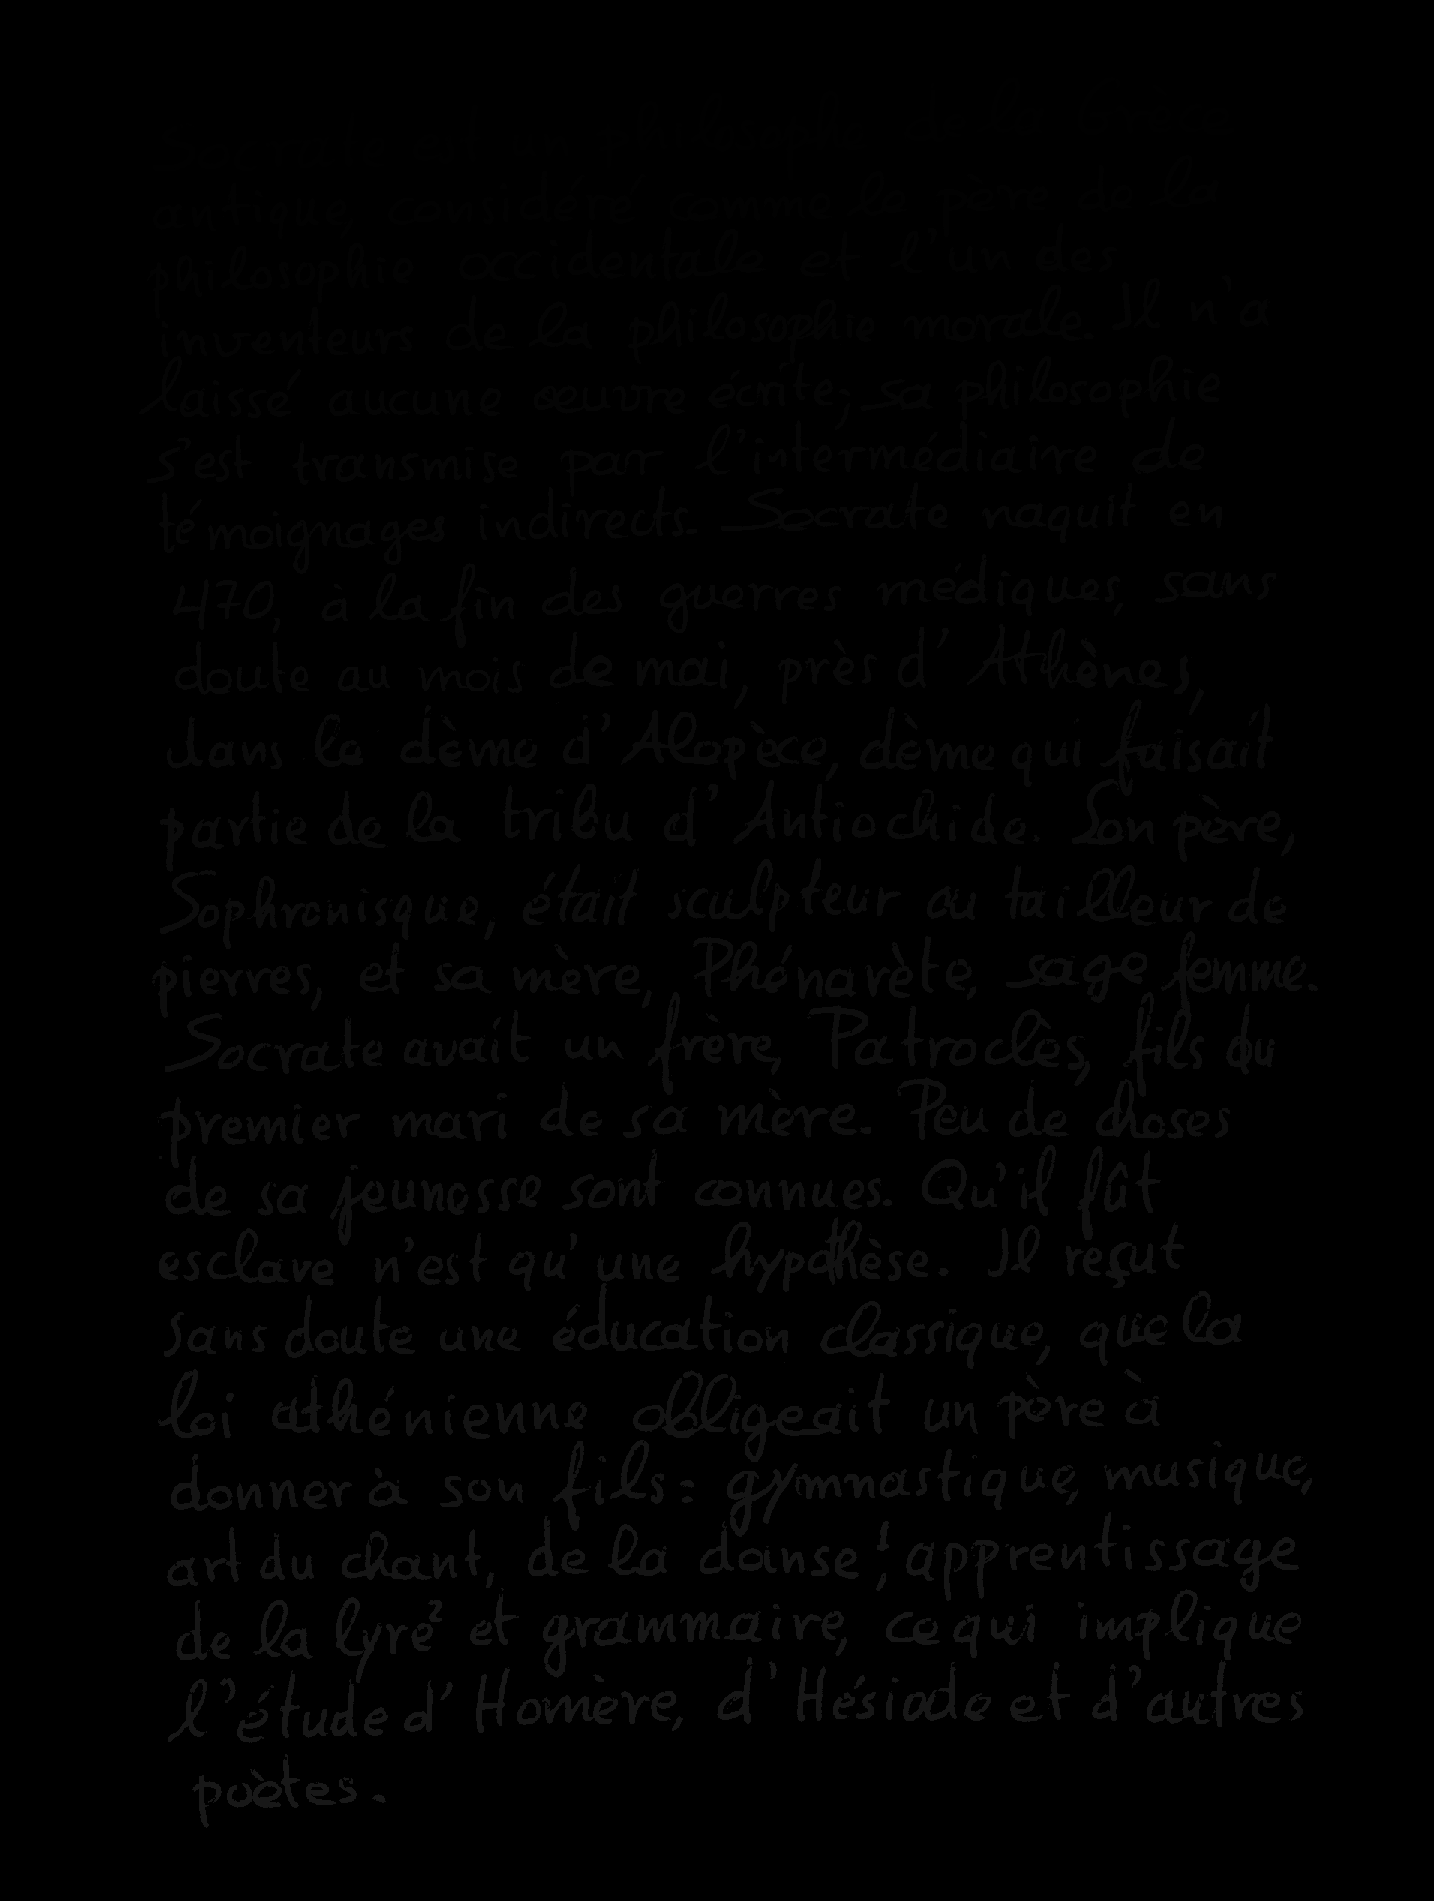 Socrate est un philosophe de la Grèce
antique, considéré comme le père de la
philosophie occidentale et l'un des
inventeurs de la philosophie morale. Il n'a
laissé aucune œuvre écrite; sa philosophie
s'est transmise par l'intermédiaire de
témoignages indirects. Socrate naquit en
470, à la fin des guerres médiques, sans
doute au mois de mai, près d'Athènes,
dans le dème d'Alopèce, dème qui faisait
partie de la tribu d'Antiochide. Son père,
Sophronisque, était sculpteur ou tailleur de
pierres, et sa mère, Phénarète, sage femme.
Socrate avait un frère, Patroclès, fils du
premier mari de sa mère. Peu de choses
de sa jeunesse sont connues. Qu'il fût
esclave n'est qu'une hypothèse. Il reçut
sans doute une éducation classique, que la
loi athénienne obligeait un père à
donner à son fils : gymnastique, musique,
art du chant, de la danse¹; apprentissage
de la lyre² et grammaire, ce qui implique
l'étude d'Homère, d'Hésiode et d'autres
poètes.